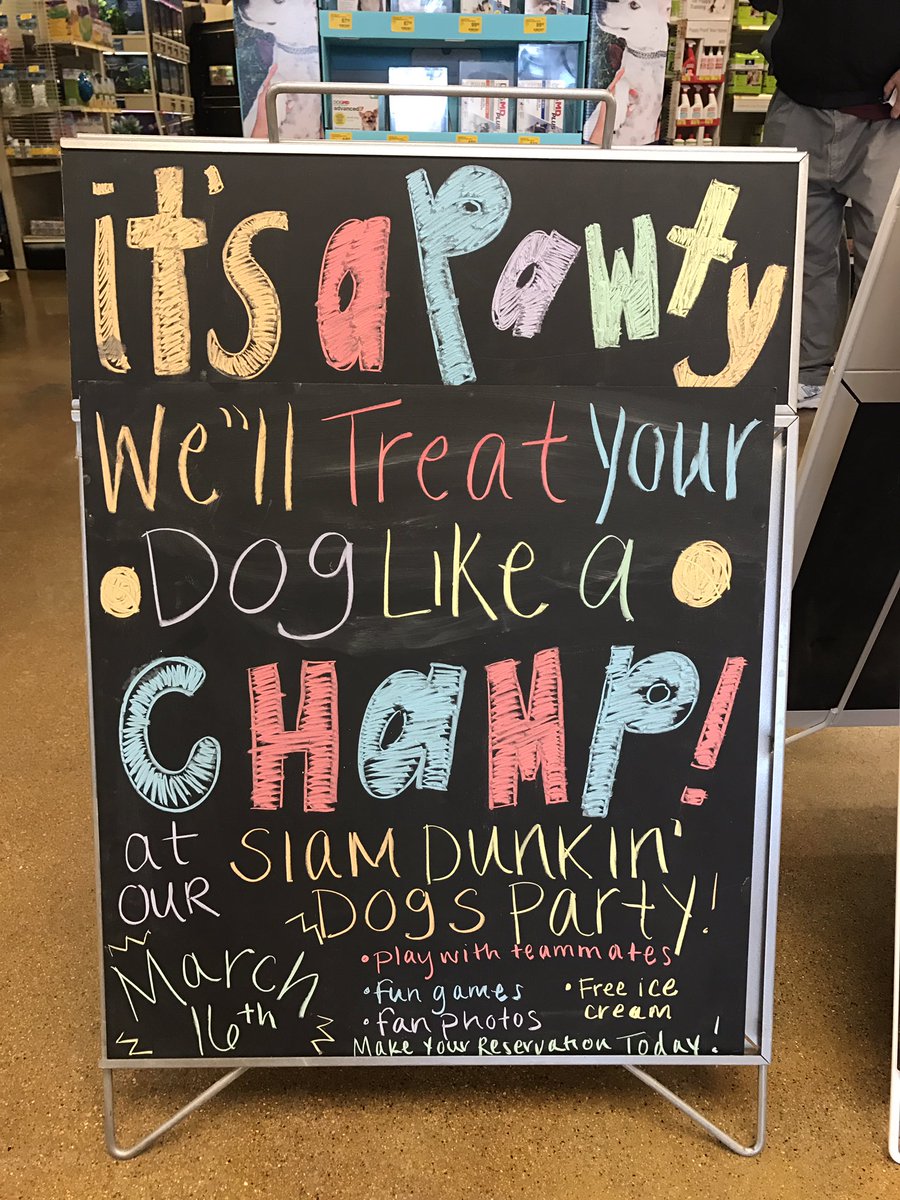 it's a pawty
We"ll Treat Your
Dog Like a
CHAMP!
at SLAM DUNKIN'
OUR DOGS Party!
March 16th
• Play with teammates
• fun games • Free ice cream
• fan photos
Make Your Reservation Today!